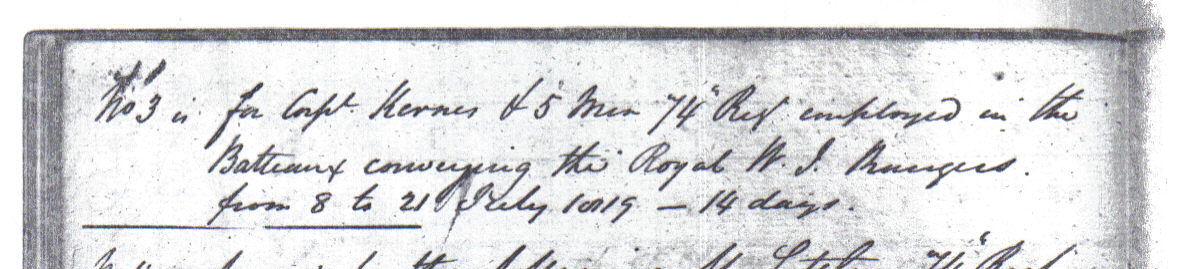 No 3 is for Corpl. Kernes & 5 Men 74th Regt employed in the
Batteaux conveying the Royal W. I. Rangers.
from 8 to 21 July 1819 — 14 days.
74th Regt